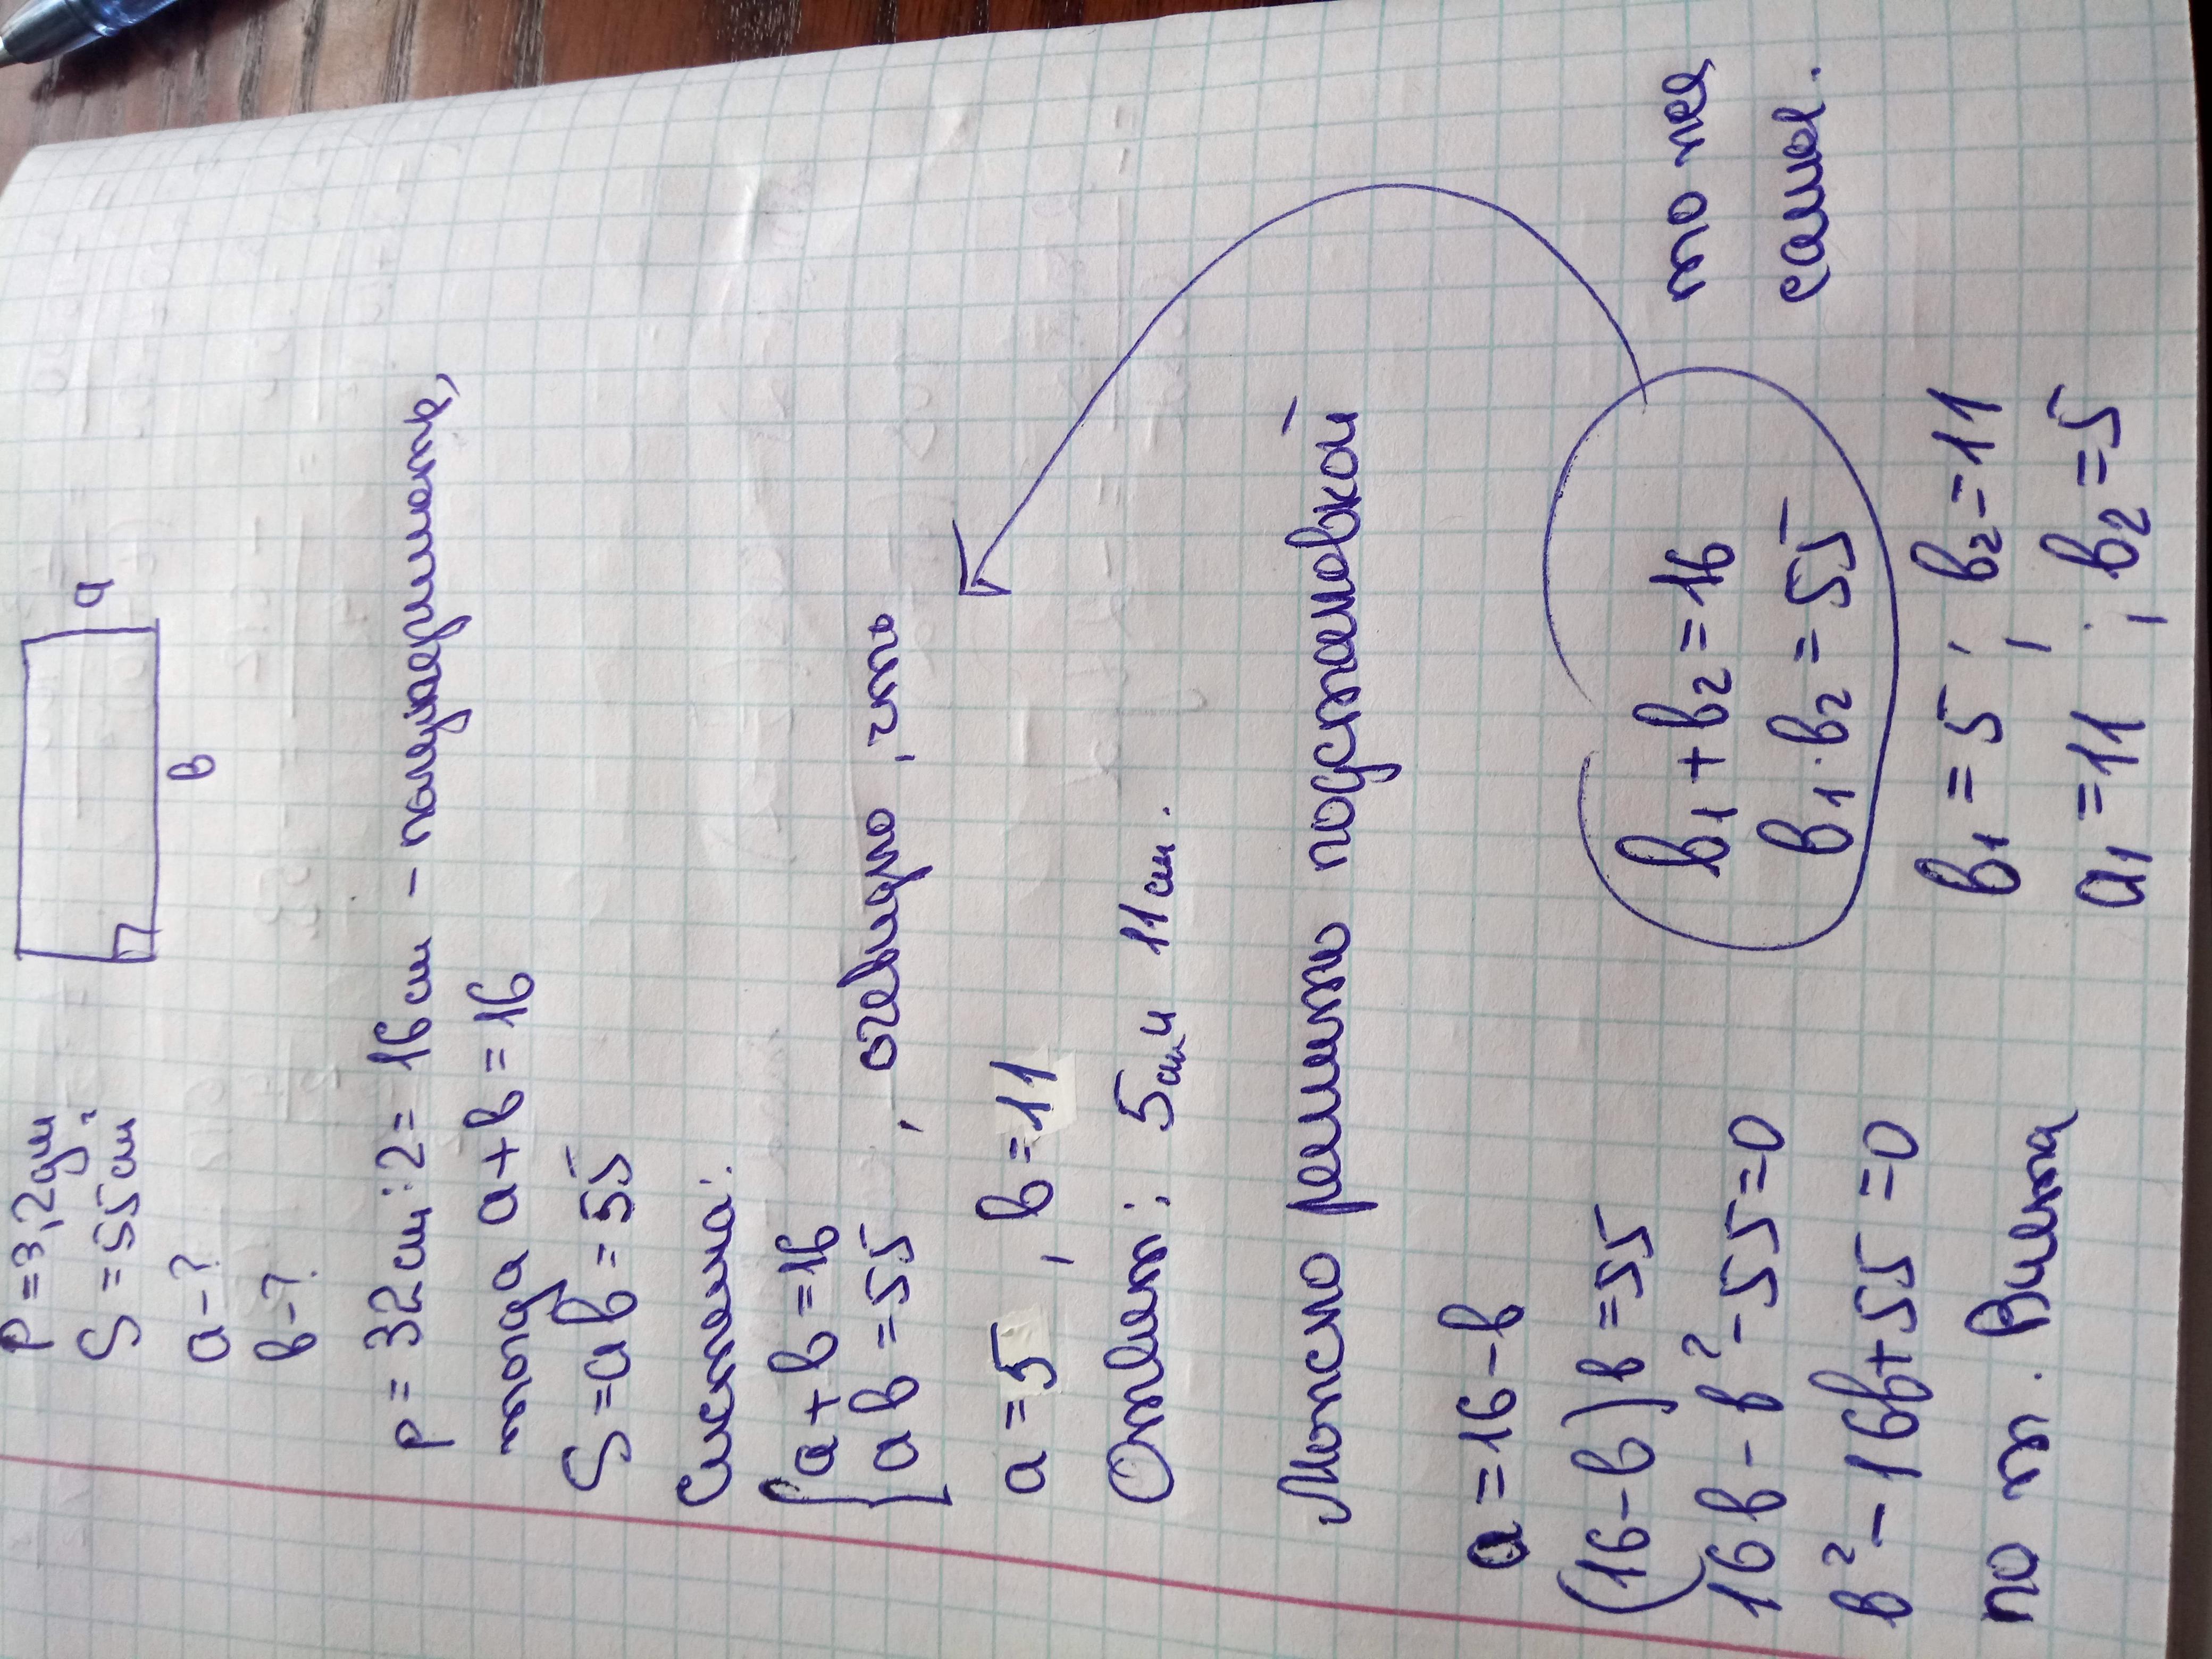 P = 3,2дм
S = 55см²
a - ?
в - ?
a
в
P = 32см : 2 = 16см - полупериметр,
тогда a + в = 16
S = aв = 55
Система:
{a + в = 16
{aв = 55 , очевидно, что
a = 5 , в = 11
Ответ: 5см и 11см.
Можно решить подстановкой
a = 16 - в
(16 - в) в = 55
16в - в² - 55 = 0
в² - 16в + 55 = 0
по т. Виета
в₁ + в₂ = 16
в₁ · в₂ = 55
то же
самое.
в₁ = 5 ; в₂ = 11
a₁ = 11 ; в₂ = 5